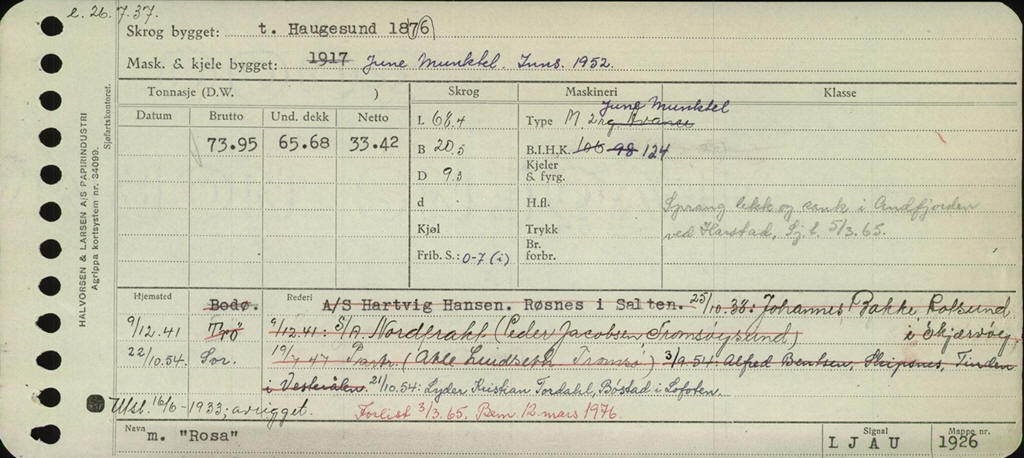 e. 26.7.37.
Skrog bygget: t. Haugesund 1876
Mask. & kjele bygget: 1917 June Munktel. Inns. 1952.
Tonnasje (D.W. )
Skrog
Maskineri
Klasse
Datum
Brutto
Und. dekk
Netto
73.95
65.68
33.42
L 68,4
B 20,5
D 9,3
d
Kjøl
Frib. S.: 0-7 (i)
June Munktel
Type M. 2rg. Avance
B.I.H.K. 106 98 124
Kjeler
& fyrg.
H.fl.
Trykk
Br.
forbr.
Sprang lekk og sank i Andfjorden
ved Harstad, Sj.t. 5/3.65.
Hjemsted Bodø. Rederi A/S Hartvig Hansen. Røsnes i Salten. 25/10.38: Johannes Bakke, Rolfsund,
9/12.41 Trö 9/12.41: S/A Nordfrakt (Peder Jacobsen, Tromsøysund) i Skjærvøy,
22/10.54. Sor. 19/7 47 Partr. (Atle Lundseth Tromsø) 3/9.54: Alfred Bentsen, Sleipnes, Tinden
i Vesterålen. 21/10.54: Lyder Kristian Tordahl, Bøstad i Lofoten.
Utsl. 16/6-1933; avrigget. Forlist 3/3.65. Bem. 12 mars 1976.
Navn m. "Rosa"
Signal
L J A U
Mappe nr.
1926
HALVORSEN & LARSEN A/S PAPIRINDUSTRI
Agrippa kortsystem nr. 34099.
Sjøfartskontoret.